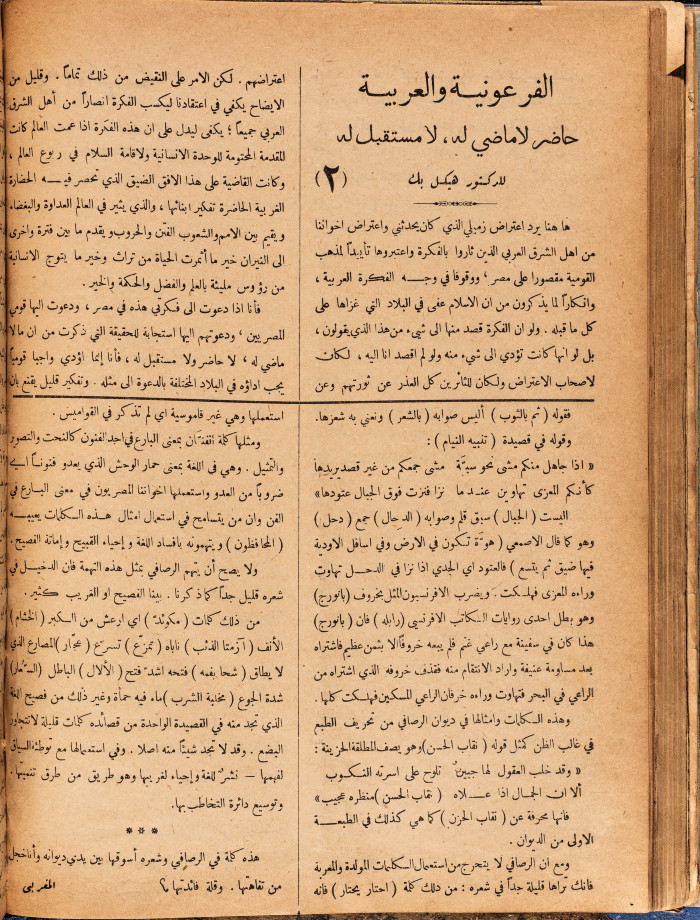 الفرعونية والعربية
حاضر لاماضي له، لامستقبل له
للدكتور هيكل بك (٢)
ها هنا يرد اعتراض زميلي الذي كان يحدثني واعتراض اخواننا
من اهل الشرق العربي الذين ثاروا بالفكرة واعتبروها تأييداً لمذهب
القومية مقصورا على مصر، ووقوفا في وجه الفكرة العربية،
وانكاراً لما يذكرون من ان الاسلام عفى في البلاد التي غزاها على
كل ما قبله. ولو ان الفكرة قصد منها الى شيء من هذا الذي يقولون،
بل لو انها كانت تؤدي الى شيء منه ولو لم اقصد انا اليه، لكان
لاصحاب الاعتراض ولكان للثائرين كل العذر عن ثورتهم وعن
اعتراضهم. لكن الامر على النقيض من ذلك تماماً. وقليل من
الايضاح يكفي في اعتقادنا ليكسب الفكرة انصاراً من أهل الشرق
العربي جميعاً؛ يكفى ليدل على ان هذه الفكرة اذا عمت العالم كانت
المقدمة المحتومة للوحدة الانسانية ولاقامة السلام في ربوع العالم،
وكانت القاضية على هذا الافق الضيق الذي تحصر فيه الحضارة
الغربية الحاضرة تفكير ابنائها، والذي يثير في العالم العداوة والبغضاء
ويقيم بين الامم والشعوب الفتن والحروب ويقدم ما بين فترة واخرى
الى النيران خير ما أثمرت الحياة من تراث وخير ما يتوج الانسانية
من رؤوس مليئة بالعلم والفضل والحكمة والخير.
فأنا اذا دعوت الى فكرتي هذه في مصر، ودعوت اليها قومي
المصريين، ودعوتهم اليها استجابة للحقيقة التي ذكرت من ان ما لا
ماضي له، لا حاضر ولا مستقبل له، فأنا إنما اؤدي واجبا قومياً
يجب اداؤه في البلاد المختلفة بالدعوة الى مثله. وتفكير قليل يقنع بأن
فقوله (ثم بالثوب) أليس صوابه (بالشعر) ونعني به شعرها.
وقوله في قصيدة (تنبيه النيام):
« اذا جاهل منكم مشى نحو سبة مشى جمعكم من غير قصد يريدها
كأنكم المعزى تهاوين عندما نزا فنزت فوق الجبال عتودها»
البست (الجبال) سبق قلم وصوابه (الدحال) جمع (دحل)
وهو كما قال الاصمعي (هوّة تكون في الارض وفي اسافل الاودية
فيها ضيق ثم يتسع) فالعتود اي الجدي اذا نزا في الدحل تهاوت
وراءه المعزى فهلكت. ويضرب الافرنسيون المثل بخروف (بانورج)
وهو بطل احدى روايات الكاتب الافرنسي (رابله) فان (بانورج)
هذا كان في سفينة مع راعي غنم فلم يبعه خروفاً الا بثمن عظيم فاشتراه
بعد مساومة عنيفة واراد الانتقام منه فقذف خروفه الذي اشتراه من
الراعي في البحر فتهاوت وراءه خرفان الراعي المسكين فهلكت كلها.
وهذه الكلمات وامثالها في ديوان الرصافي من تحريف الطبع
في غالب الظن كمثل قوله (نقاب الحسن) وهو يصف المطلقة الحزينة:
« وقد خلب العقول لها جبين تلوح على اسرته النكوب
ألا ان الجمال اذا علاه (نقاب الحسن) منظره عجيب»
فانها محرفة عن (نقاب الحزن) كما هي كذلك في الطبعة
الاولى من الديوان.
ومع ان الرصافي لا يتحرج من استعمال الكلمات المولدة والمعربة
فانك تراها قليلة جداً في شعره: من ذلك كلمة (احتار يحتار) فانه
استعملها وهي غير قاموسية اي لم تذكر في القواميس.
ومثلها كلمة الفنان بمعنى البارع في احد الفنون كالنحت والتصوير
والتمثيل. وهي في اللغة بمعنى حمار الوحش الذي يعدو فنوناً اي
ضروباً من العدو واستعملها اخواننا المصريون في معنى البارع في
الفن وان من يتسامح في استعمال امثال هذه الكلمات يعيبه
(المحافظون) ويتهمونه بافساد اللغة وإحياء القبيح وإماتة الفصيح.
ولا يصح أن يتهم الرصافي بمثل هذه التهمة فان الدخيل في
شعره قليل جداً كما ذكرنا. بينا الفصيح او الغريب كثير.
من ذلك كمات (مكوئد) اي ارعش من الكبر (الخشام)
الأنف (أزمتا الذئب) ناباه (تمزع) تسرع (عجّار) المصارع الذي
لا يطاق (شحا بفمه) فتحه اشد فتح (الألال) الباطل (السعار)
شدة الجوع (مخلبة الشرب) ماء فيه حمأة وغير ذلك من فصيح اللغة
الذي تجد منه في القصيدة الواحدة من قصائده كمات قليلة لا تتجاوز
البضع. وقد لا تجد شيئاً منه اصلا. وفي استعمالها مع توطئة السياق
لفهمها – نشر للغة وإحياء لغريبها وهو طريق من طرق تنميتها.
وتوسيع دائرة التخاطب بها.
* * *
هذه كمة في الرصافي وشعره أسوقها بين يدي ديوانه وأنا خجل
من تفاهتها. وقلة فائدتها ما؟ المغربي